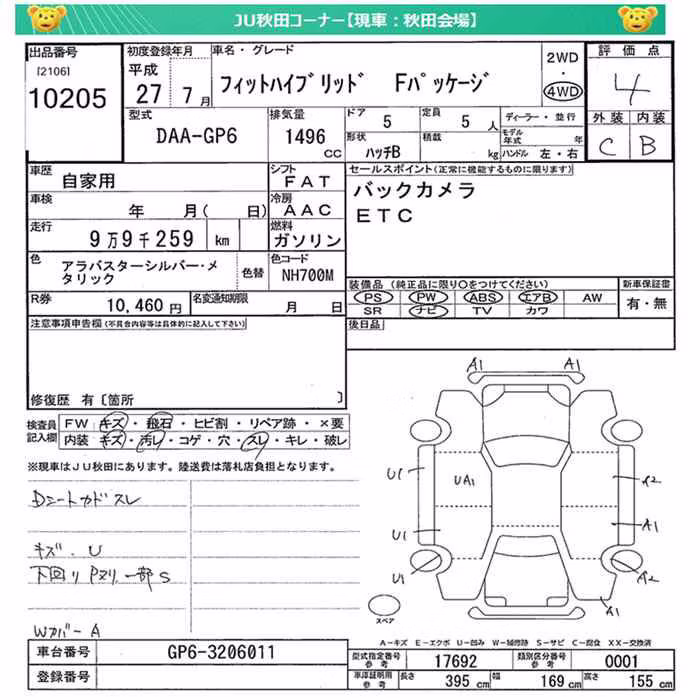 JU秋田コーナー【現車：秋田会場】
出品番号 初度登録年月 車名・グレード 評価点
[2106] 平成 2WD
10205 27 7月 フィットハイブリッド Fパッケージ ・ 4
4WD
型式 排気量 ドア 定員 ディーラー・並行 外装 内装
DAA-GP6 1496 CC 5 5 人 モデル年式 年 C B
形状 積載
ハッチB kg ハンドル 左・右
車歴 自家用 シフト FAT セールスポイント(正常に機能するものに限ります)
車検 年 月( 日) 冷房 AAC バックカメラ
走行 9万9千259 km 燃料 ガソリン ETC
色 アラバスターシルバー・メタリック 色替 色コード NH700M
装備品 (純正品に限り○をつけてください) 新車保証書
R券 10,460円 名変通知期限 月 日 PS PW ABS エアB AW 有・無
SR ナビ TV カワ
注意事項申告欄(不具合内容等は具体的に記入して下さい) 後日品
修復歴 有〔箇所 〕
検査員記入欄 FW キズ・飛石・ヒビ割・リペア跡・×要
内装 キズ・汚レ・コゲ・穴・スレ・キレ・破レ
※現車はJU秋田にあります。陸送費は落札店負担となります。
Dシートカドスレ
キズ・U
下回りPヌリ一部S
Wカバー A
A1 A1
U1 UA1 A2
U1 A1
U1 A2
A1
スペア
A-キズ E-エクボ U-凹み W-補修跡 S-サビ C-腐食 XX-交換済
車台番号 GP6-3206011 型式指定番号 参考 17692 類別区分番号 参考 0001
登録番号 車庫証明用 参考 長さ 395 cm 幅 169 cm 高さ 155 cm